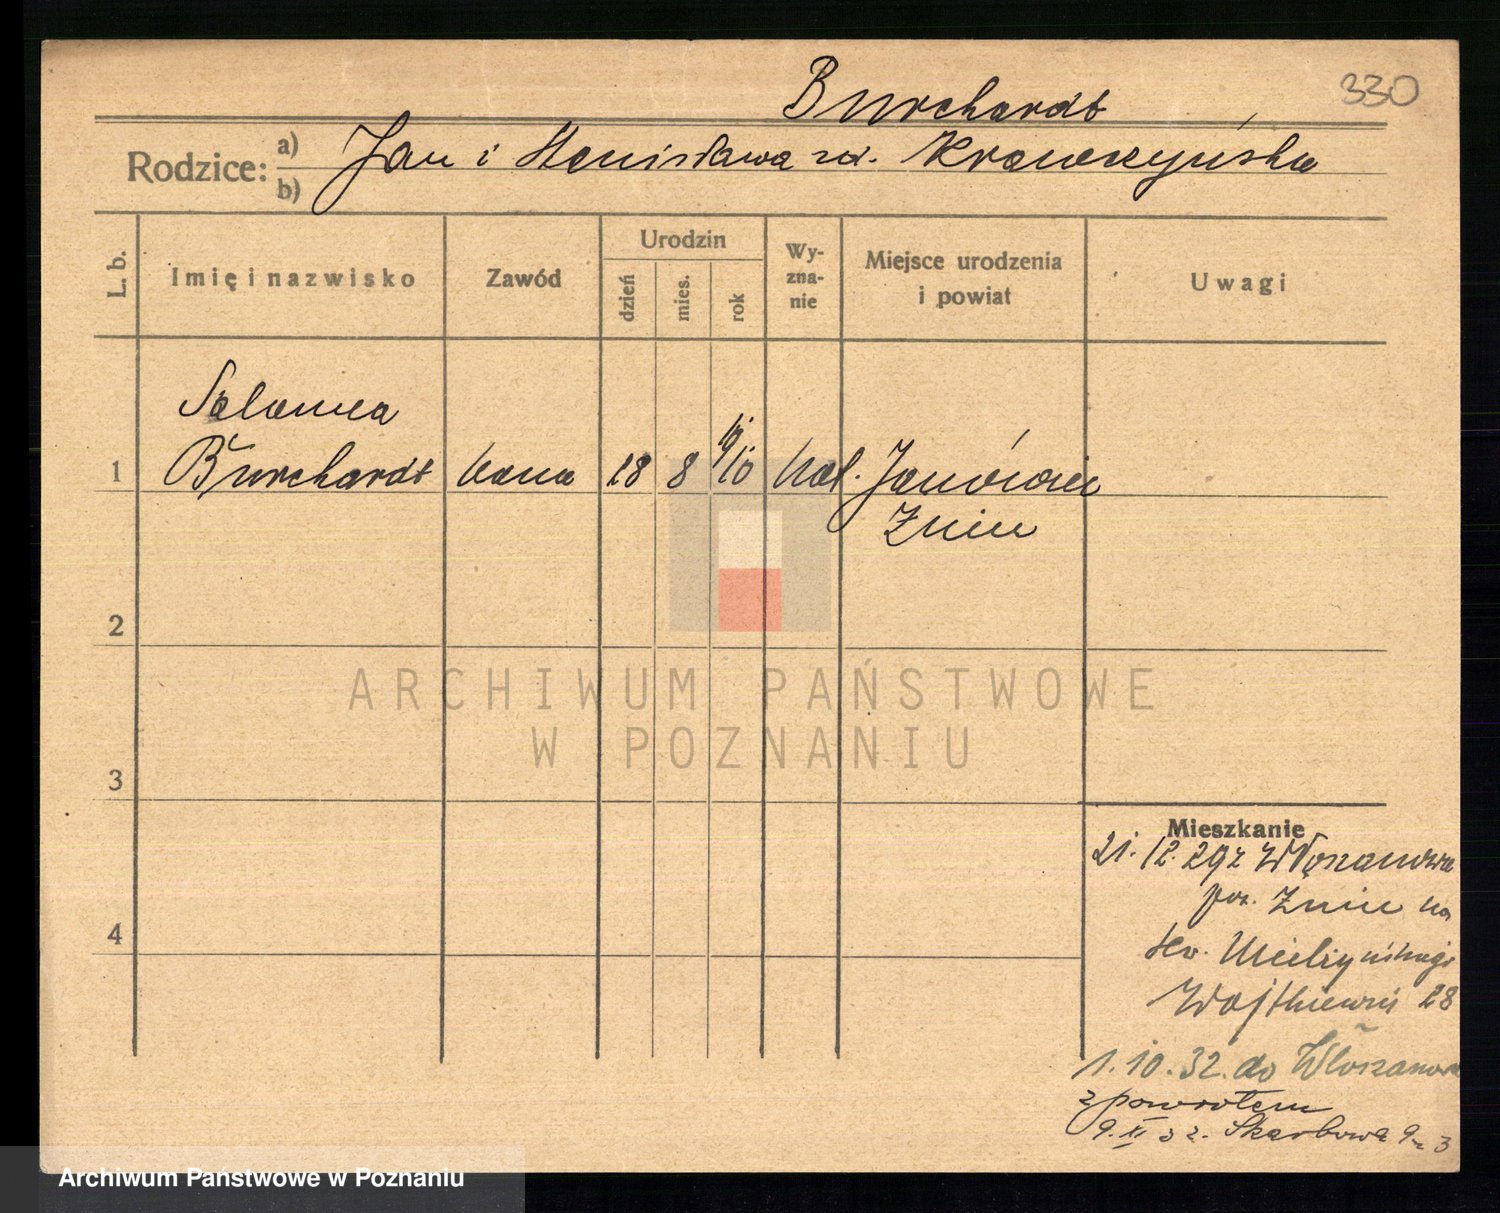 Burchardt
330
Rodzice: a) Jan i Stanisława zd. Krawczyńska
b)
L. b.
Imię i nazwisko
Zawód
Urodzin
dzień
mies.
rok
Wy-
zna-
nie
Miejsce urodzenia
i powiat
Uwagi
Salomea
1 Burchardt 18 8 19/10 kat. Janówiec
Żnin
2
ARCHIWUM PAŃSTWOWE
W POZNANIU
3
Mieszkanie
21. 12. 29 z Włoszanowa
pow. Żnin na
Hr. Mielżyńskiego
Wojtkiewicz 28
4
1. 10. 32. do Włoszanowa
z powrotem
9. XI 32. Skarbowa 9 3
Archiwum Państwowe w Poznaniu